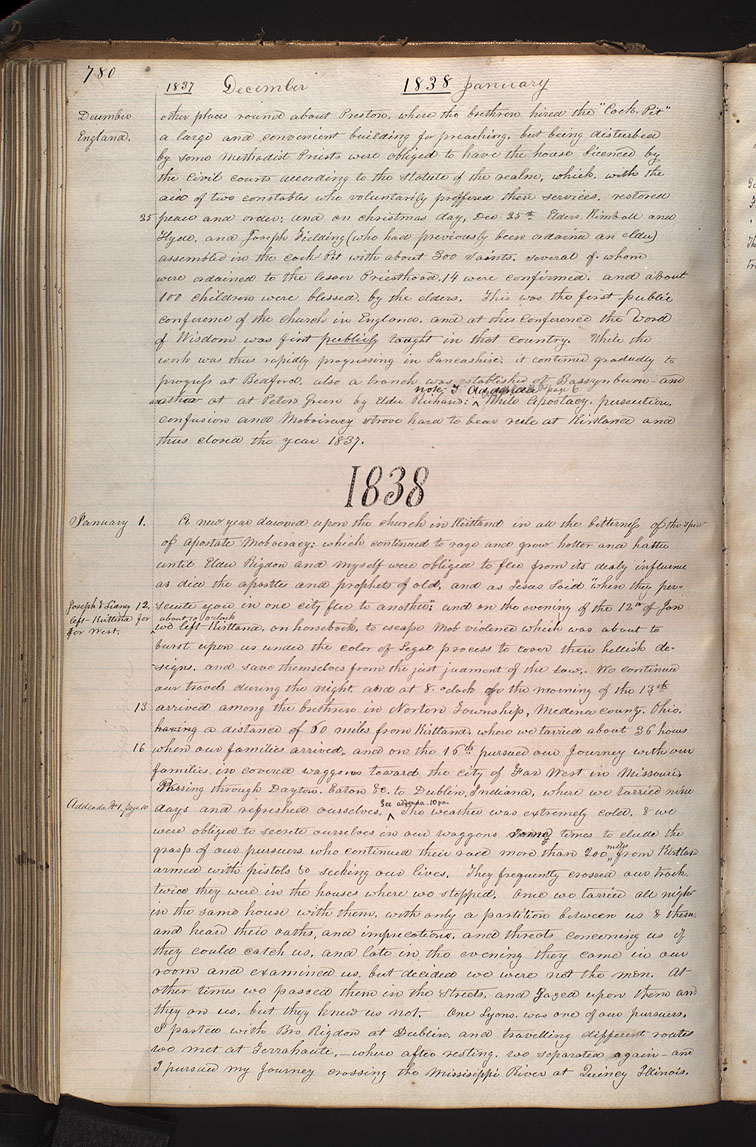 780
1837 December 1838 January
December
England.
other places round about Preston, where the brethren hired the "Cock Pit"
a large and convenient building for preaching, but being disturbed
by some Methodist Priests were obliged to have the house licenced by
the civil courts according to the statute of the realm, which, with the
aid of two constables who voluntarily proffered their services, restored
25 peace and order; and on christmas day, Dec 25th Elders Kimball and
Hyde, and Joseph Fielding (who had previously been ordained an elder)
assembled in the Cock Pit with about 300 saints, several of whom
were ordained to the lesser Priesthood, 14 were confirmed, and about
100 children were blessed by the elders. This was the first public
conference of the church in England, and at this conference the Word
of Wisdom was first publicly taught in that country. While the
work was thus rapidly progressing in Lancashire, it continued gradually to
progress at Bedford, also a branch was established at Bassynburn and
note I Addenda page 6
another at at Peters Green by Elder Richards: ^ While apostacy, persecution,
confusion and Mobocracy strove hard to bear rule at Kirtland and
thus closed the year 1837.
1838
January 1. A new year dawned upon the church in Kirtland in all the bitterness of the spirit
of apostate Mobocracy; which continued to rage and grow hotter and hotter
until Elder Rigdon and myself were obliged to flee from its deadly influence
as did the apostles and prophets of old, and as Jesus said "when they per-
Joseph & Sidney 12. secute you in one city flee to another"; and on the evening of the 12th of Jan
left Kirtland for
Far West.
about 10 o'clock
^ we left Kirtland, on horseback, to escape Mob violence which was about to
burst upon us under the color of legal process to cover their hellish de-
signs, and save themselves from the just judment of the law. We continued
our travels during the night, and at 8 oclock on the morning of the 13th
13 arrived among the brethren in Norton Township, Medina county, Ohio,
having a distance of 60 miles from Kirtland, where we tarried about 36 hours
16 when our families arrived, and on the 16th pursued our Journey with our
families, in covered waggons toward the city of Far West in Missouri
Passing through Dayton, Eaton &c. to Dublin, Indiana, where we tarried nine
See addenda 10 pa.
Addenda page 10 days and refreshed ourselves. ^ The weather was extremely cold, & we
were obliged to secrete ourselves in our waggons some times to elude the
grasp of our pursuers who continued their race more than 200 miles from Kirtland
armed with pistols &c seeking our lives. They frequently crossed our track
twice they were in the houses where we stopped. Once we tarried all night
in the same house with them, with only a partition between us & them
and heard their oaths, and imprecations, and threats concerning us if
they could catch us, and late in the evening they came in our
room and examined us, but decided we were not the men. At
other times we passed them in the streets, and gazed upon them and
they on us, but they knew us not. One Lyons was one of our pursuers.
I parted with Bro Rigdon at Dublin, and travelling different routes
we met at Terrahaute, where after resting, we separated again and
I pursued my Journey crossing the Mississippi River at Quincy Illinois.